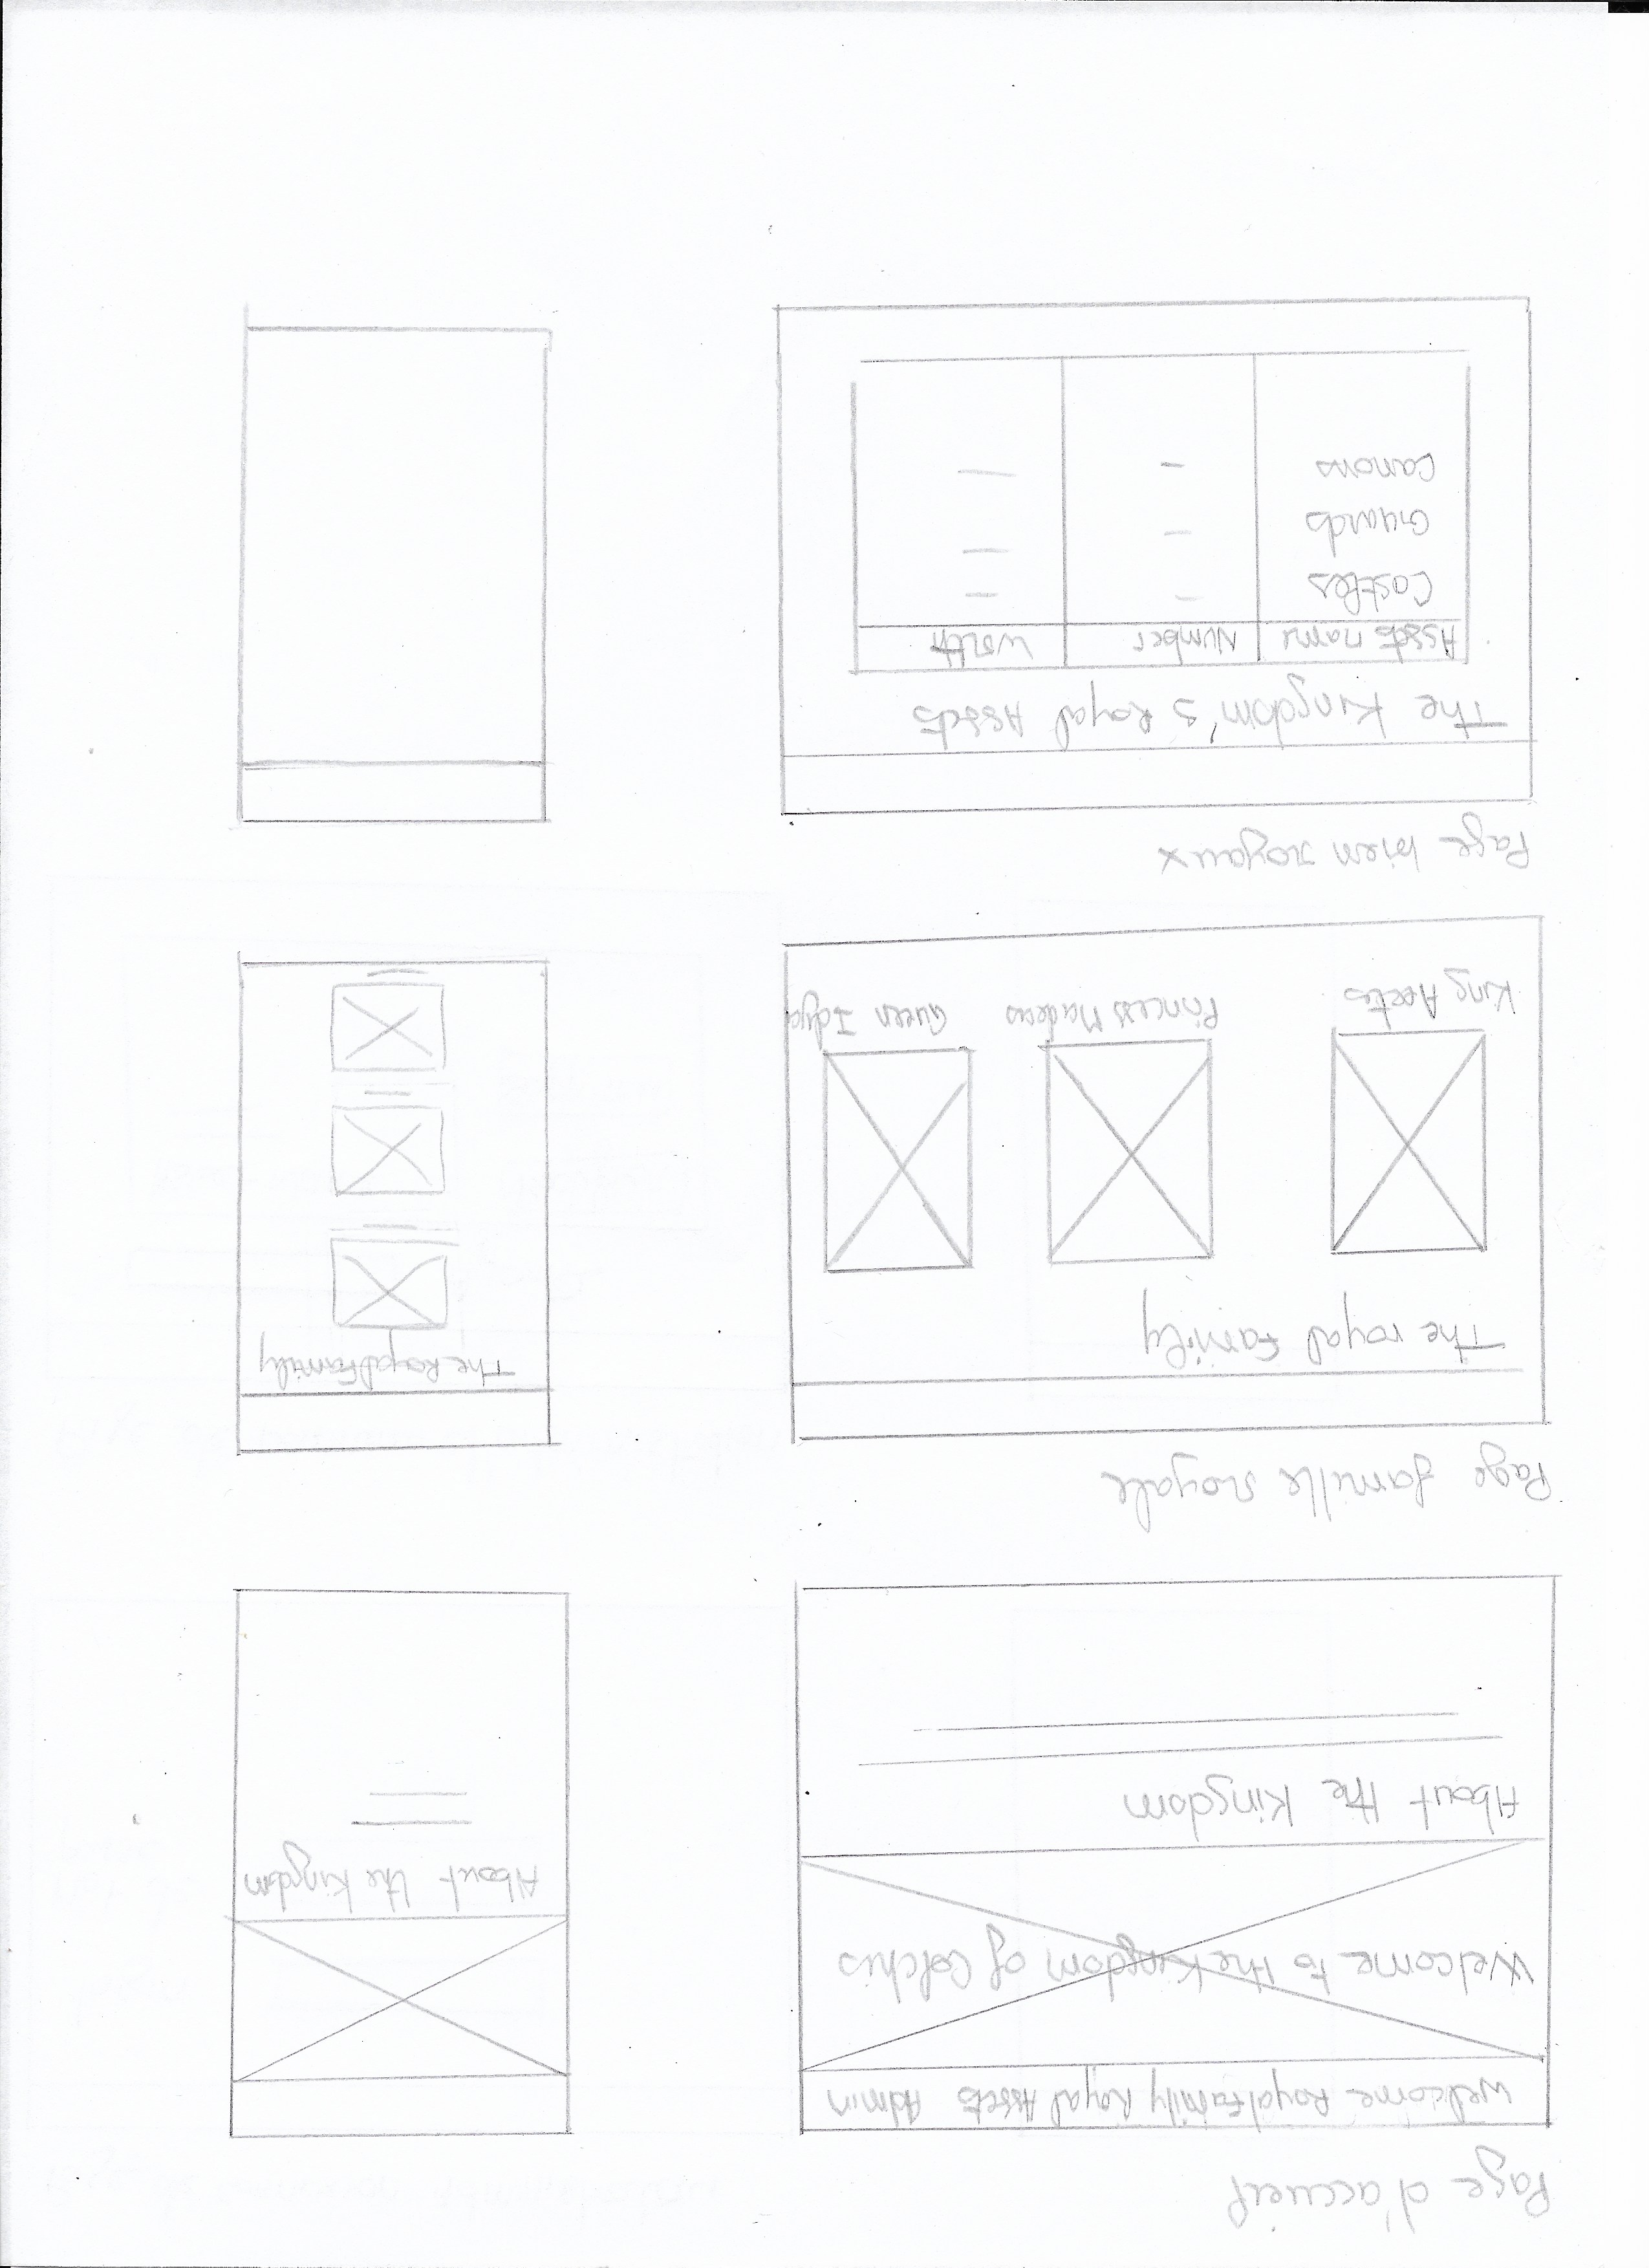 Page d'accueil
Welcome Royal Family Royal Assets Admin
Welcome to the Kingdom of Colchis
About the Kingdom
About the Kingdom
Page famille royale
The royal family
The Royal Family
King Aeetes
Princess
Queen Idya
Page bien royaux
The Kingdom's Royal Assets
Assets name Number Worth
Castles
Guards
Canons